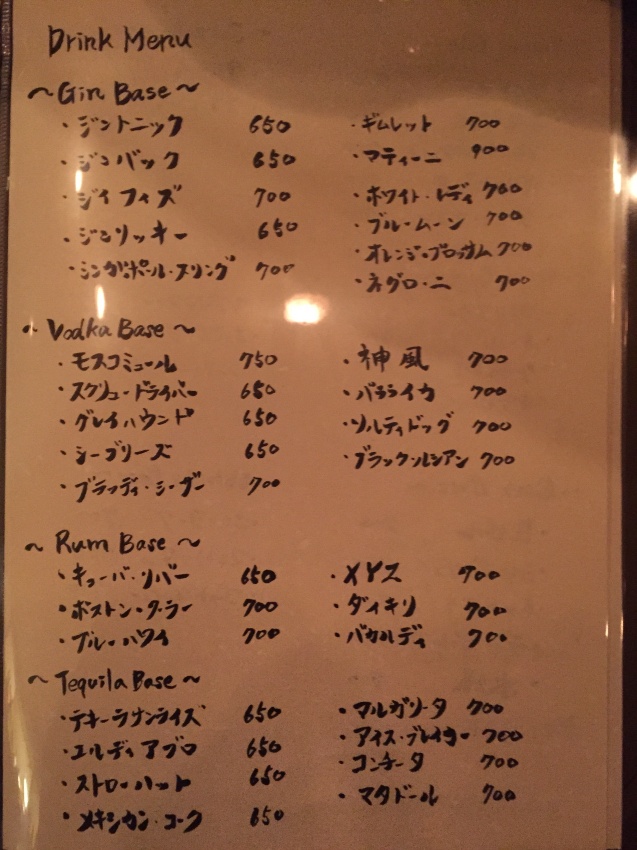 Drink Menu
～Gin Base～
・ジントニック 650
・ジンバック 650
・ジィフィズ 700
・ジンリッキー 650
・シンガポール・スリング 700
・ギムレット 700
・マティーニ 900
・ホワイト・レディ 700
・ブルームーン 700
・オレンジ・ブロッサム 700
・ネグロ・ニ 700
～Vodka Base～
・モスコミュール 750
・スクリュードライバー 650
・グレイハウンド 650
・シーブリーズ 650
・ブラッディ・シーザー 700
・神風 700
・バラライカ 700
・ソルティドッグ 700
・ブラック・ルシアン 700
～Rum Base～
・キューバ・リバー 650
・ボストン・クーラー 700
・ブルーハワイ 700
・XYZ 700
・ダイキリ 700
・バカルディ 700
～Tequila Base～
・テキーラサンライズ 650
・エルディアブロ 650
・ストローハット 650
・メキシカン・コーク 650
・マルガリータ 700
・アイス・ブレイカー 700
・コンチータ 700
・マタドール 700